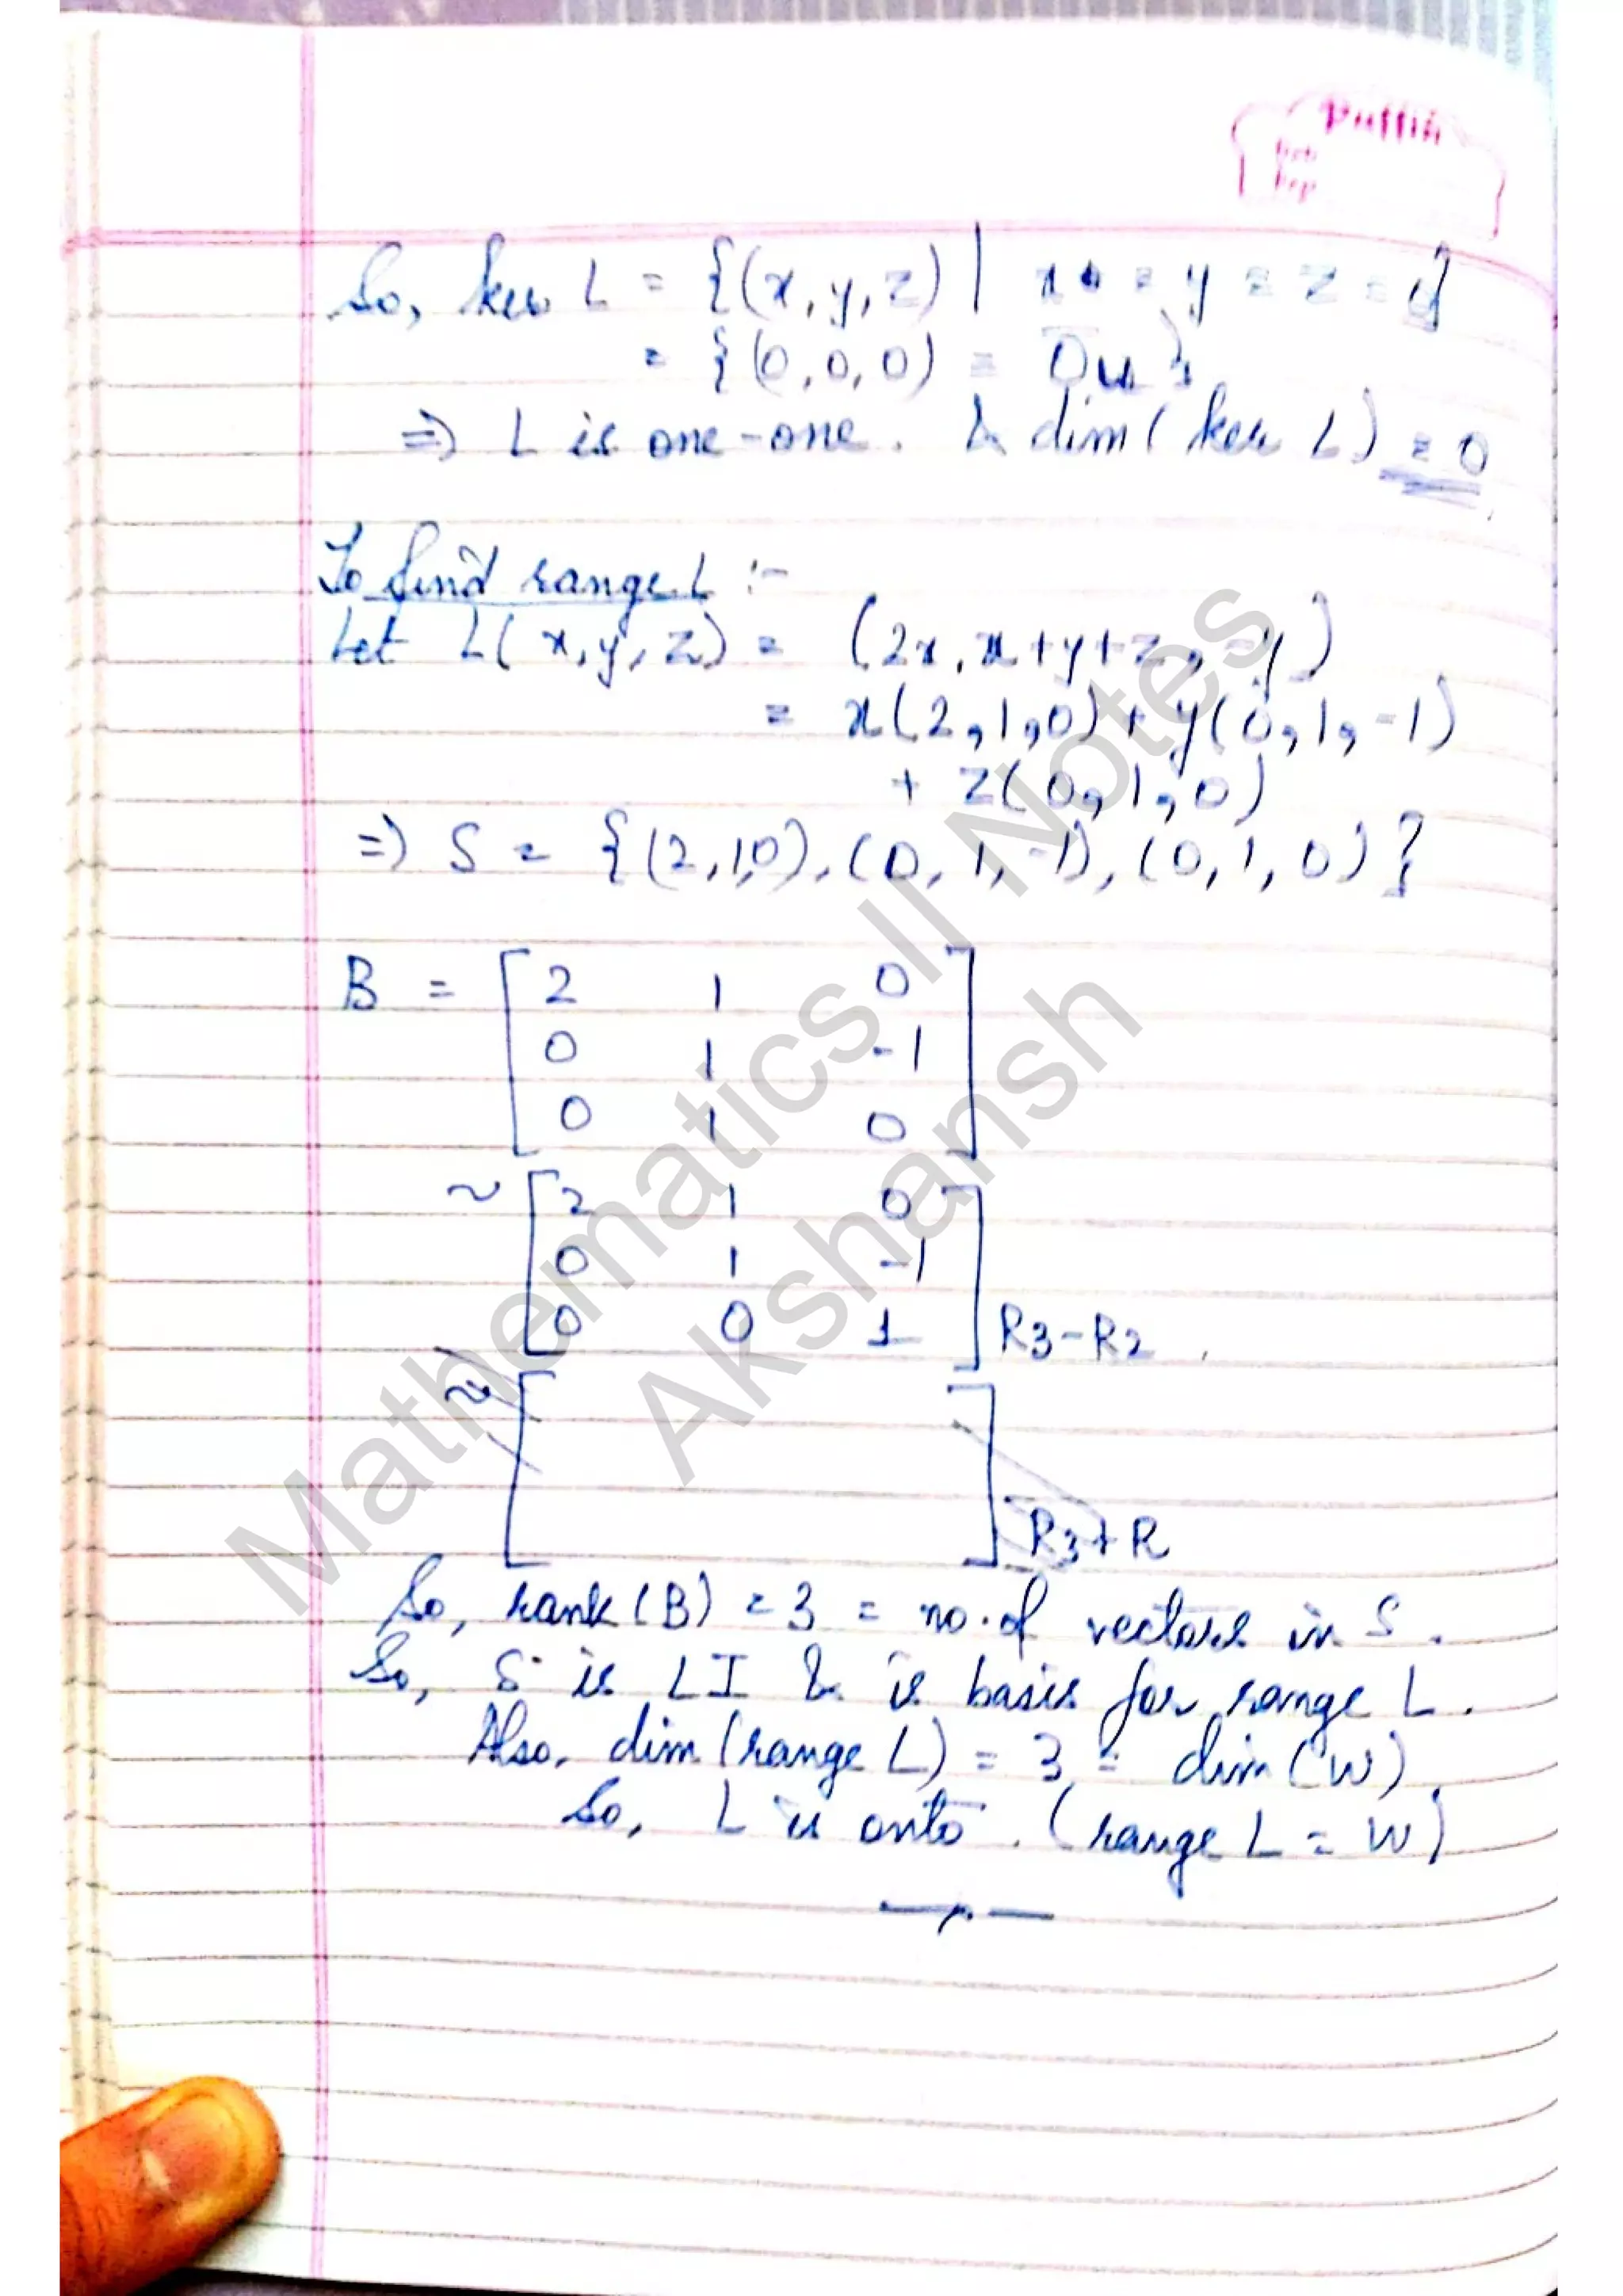 So, ker L = {(x, y, z) | x = y = z = 0}
= {(0, 0, 0) = 0
⇒ L is one-one. & dim (ker L) = 0
To find range L :-
Let L( x, y, z) = (2x, x+y+z, -y)
= x(2, 1, 0) + y(0, 1, -1)
+ z(0, 1, 0)
⇒ S = {(2,1,0), (0, 1, -1), (0, 1, 0)}
B = [ 2 1 0
0 1 -1
0 1 0 ]
~ [ 2 1 0
0 1 -1
0 0 1 ] R3-R2
~ [ ] R3+R
So, rank (B) = 3 = no. of vectors in S.
So, S is LI & is basis for range L.
Also, dim (range L) = 3 = dim (W)
So, L is onto. (range L = W)
Mathematics II Notes
Akshansh